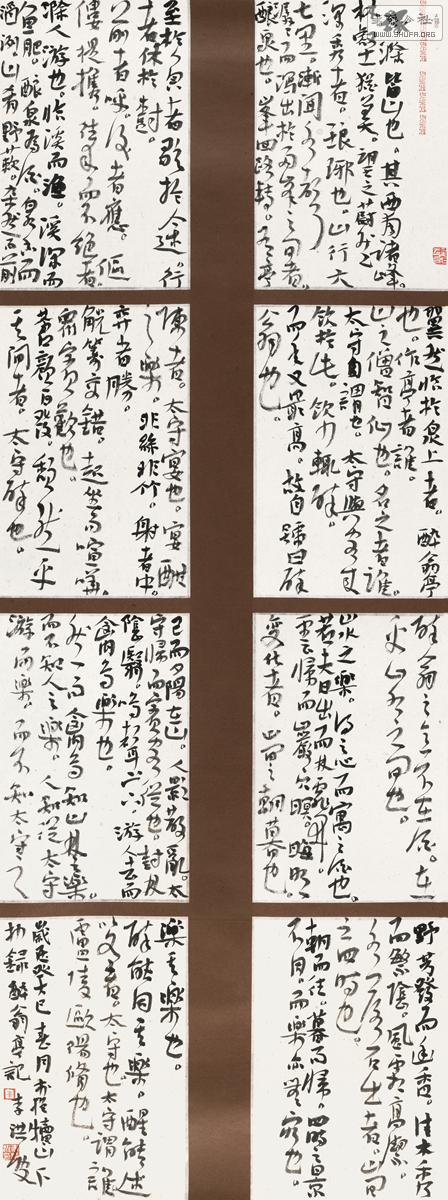 環滁皆山也。其西南諸峰。
林壑尤美。望之蔚然而
深秀者。琅琊也。山行六
七里。漸聞水聲
潺潺而瀉出於兩峰之間者。
釀泉也。峰回路轉。有亭
翼然臨於泉上者。醉翁亭
也。作亭者誰。
山之僧智仙也。名之者誰。
太守自謂也。太守與客來
飲於此。飲少輒醉。
而年又最高。故自號曰醉
翁也。
醉翁之意不在酒。在
乎山水之間也。
山水之樂。得之心而寓之酒也。
若夫日出而林霏開。
雲歸而巖穴暝。晦明
變化者。山間之朝暮也。
野芳發而幽香。佳木秀
而繁陰。風霜高潔。
水落石出者。山間
之四時也。
朝而往。暮而歸。四時之景
不同。而樂亦無窮也。
至於負者歌於途。行
者休於樹。
前者呼。後者應。傴
僂提攜。往來而不絕者。
滁人游也。臨溪而漁。溪深而
魚肥。釀泉為酒。泉香而
酒洌。山肴野蔌。雜然而前
陳者。太守宴也。宴酣
之樂。非絲非竹。射者中。
弈者勝。
觥籌交錯。起坐而喧嘩。
眾賓歡也。
蒼顏白髮。頹然乎
其間者。太守醉也。
已而夕陽在山。人影散亂。太
守歸而賓客從也。樹林
陰翳。鳴聲上下。游人去而
禽鳥樂也。
然而禽鳥知山林之樂。
而不知人之樂。人知從太守
游而樂。而不知太守之
樂其樂也。
醉能同其樂。醒能述
以文者。太守也。太守謂誰
廬陵歐陽修也。
抄錄醉翁亭記 李洪